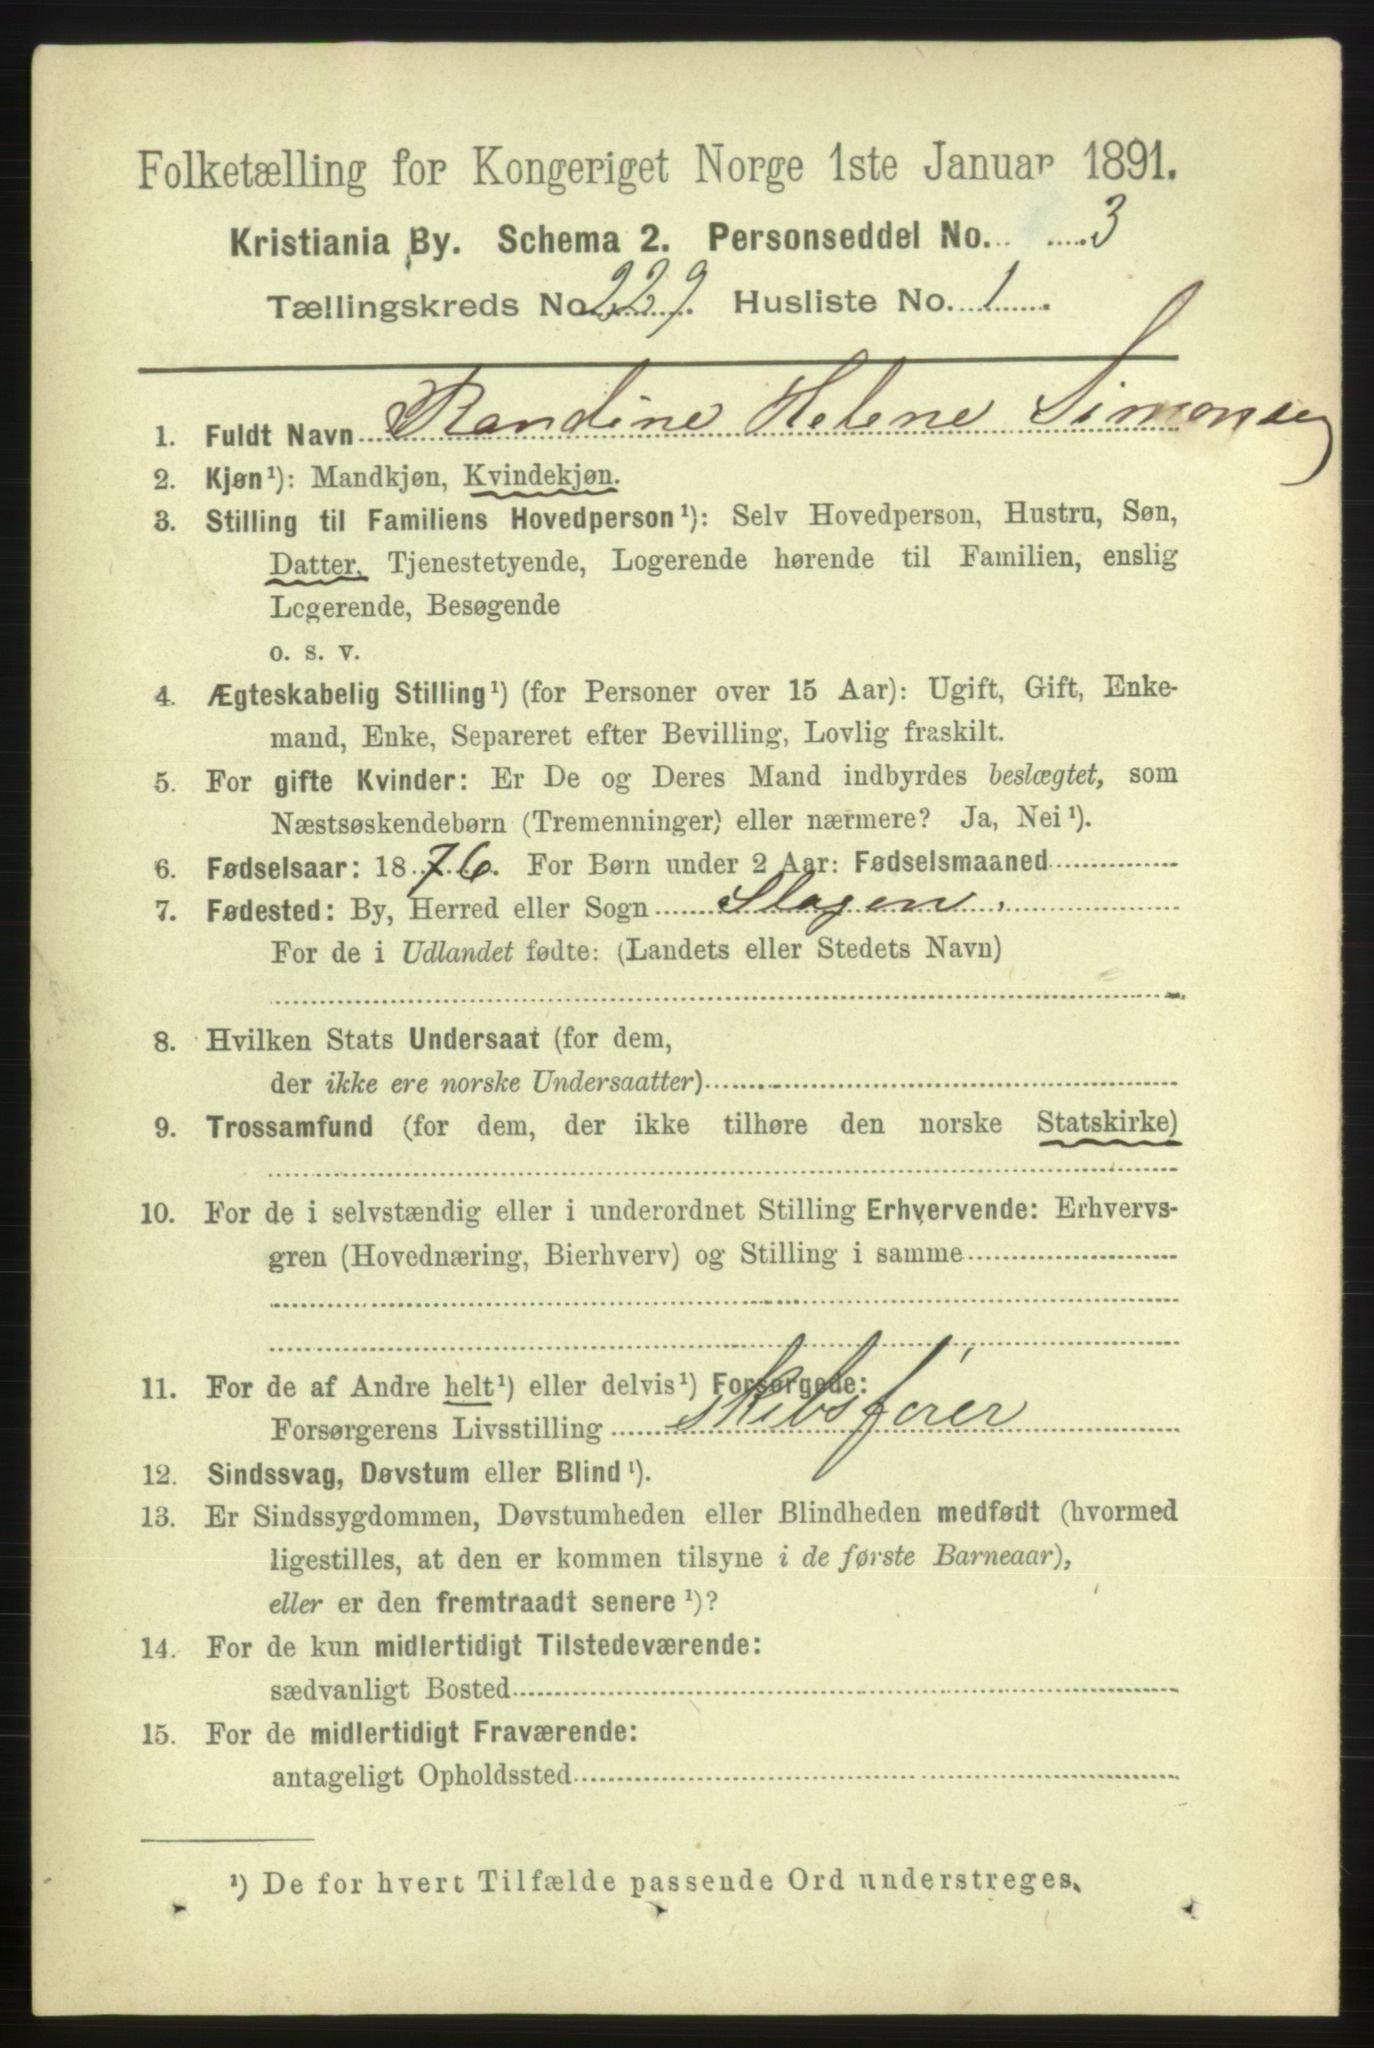 Folketælling for Kongeriget Norge 1ste Januar 1891.
Kristiania By. Schema 2. Personseddel No. 3
Tællingskreds No. 229. Husliste No. 1.
1. Fuldt Navn Randine Helene Simonsen
2. Kjøn¹): Mandkjøn, Kvindekjøn.
3. Stilling til Familiens Hovedperson¹): Selv Hovedperson, Hustru, Søn,
Datter, Tjenestetyende, Logerende hørende til Familien, enslig
Logerende, Besøgende
o. s. v.
4. Ægteskabelig Stilling¹) (for Personer over 15 Aar): Ugift, Gift, Enke-
mand, Enke, Separeret efter Bevilling, Lovlig fraskilt.
5. For gifte Kvinder: Er De og Deres Mand indbyrdes beslægtet, som
Næstsøskendebørn (Tremenninger) eller nærmere? Ja, Nei¹).
6. Fødselsaar: 1876. For Børn under 2 Aar: Fødselsmaaned
7. Fødested: By, Herred eller Sogn Slagen.
For de i Udlandet fødte: (Landets eller Stedets Navn)
8. Hvilken Stats Undersaat (for dem,
der ikke ere norske Undersaatter)
9. Trossamfund (for dem, der ikke tilhøre den norske Statskirke)
10. For de i selvstændig eller i underordnet Stilling Erhvervende: Erhvervs-
gren (Hovednæring, Bierhverv) og Stilling i samme
11. For de af Andre helt¹) eller delvis¹) Forsørgede:
Forsørgerens Livsstilling Skibsfører
12. Sindssvag, Døvstum eller Blind¹).
13. Er Sindssygdommen, Døvstumheden eller Blindheden medfødt (hvormed
ligestilles, at den er kommen tilsyne i de første Barneaar),
eller er den fremtraadt senere¹)?
14. For de kun midlertidigt Tilstedeværende:
sædvanligt Bosted
15. For de midlertidigt Fraværende:
antageligt Opholdssted
¹) De for hvert Tilfælde passende Ord understreges.